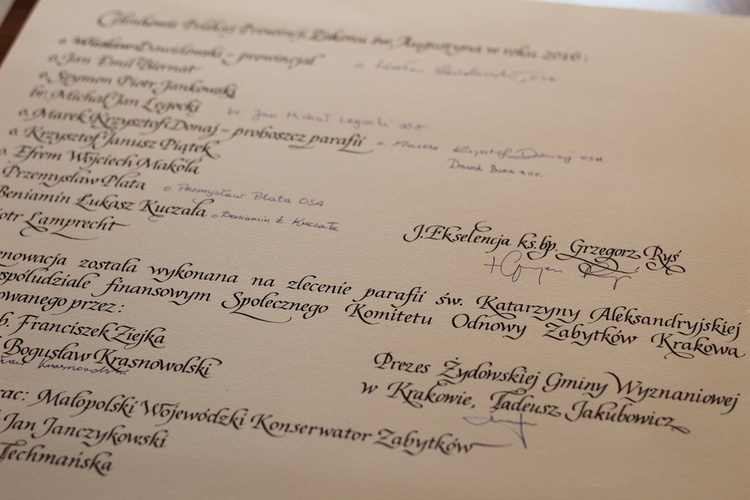 Członkowie Polskiej Prowincji Zakonu św. Augustyna w roku 2016:
o. Wiesław Dawidowski - prowincjał
o. Jan Emil Biernat
o. Szymon Piotr Jankowski
br. Michał Jan Legocki br. Jan Michał Legocki OSA
o. Marek Krzysztof Donaj - proboszcz parafii o. Marek Krzysztof Donaj OSA
o. Krzysztof Janusz Piątek Dawid
o. Efrem Wojciech Makola
Przemysław Plata o. Przemysław Plata OSA
Beniamin Łukasz Kuczała o. Beniamin Ł. Kuczała
iotr Lamprecht
J.Ekselencja ks.bp. Grzegorz Ryś
enowacja została wykonana na zlecenie parafii św. Katarzyny Aleksandryjskiej
spółudziale finansowym Społecznego Komitetu Odnowy Zabytków Krakowa
owanego przez:
b. Franciszek Ziejka
Bogusław Krasnowolski
Krasnowolski
Prezes Żydowskiej Gminy Wyznaniowej
w Krakowie, Tadeusz Jakubowicz
rac: Małopolski Wojewódzki Konserwator Zabytków
Jan Janczykowski
Techmańska